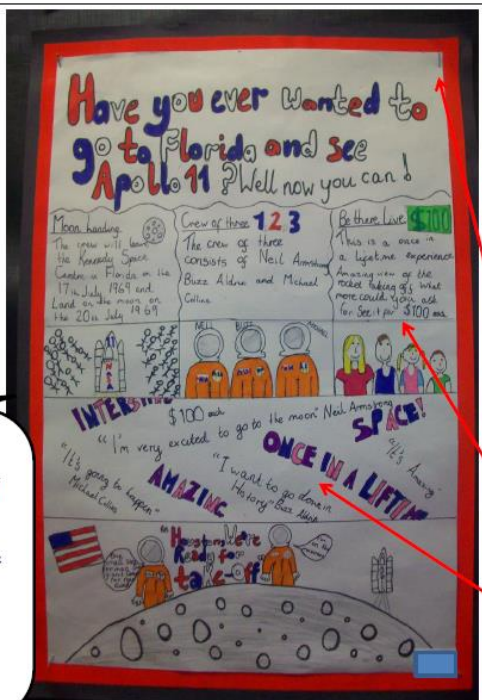 Have you ever wanted to
go to Florida and see
Apollo 11 ? Well now you can !
Moon Landing
The crew will leave
the Kennedy Space
Centre in Florida on the
17th July 1969 and
Land on the moon on
the 20th July 1969
Crew of three 1 2 3
The crew of three
consists of Neil Armstrong
Buzz Aldrin and Michael
Collins
Be there Live $100
This is a once in
a lifetime experience
Amazing view of the
rocket taking off what
more could you ask
for See it for $100 each
NEIL BUZZ MICHAEL
$100 each
SPACE!
"I'm very excited to go to the moon" Neil Armstrong
ONCE IN A LIFTIME
"It's Amazing"
"It's going to happen"
Michael Collins
AMAZING
"I want to go down in
History" Buzz Aldrin
"Houston We're
Ready for
take-off"